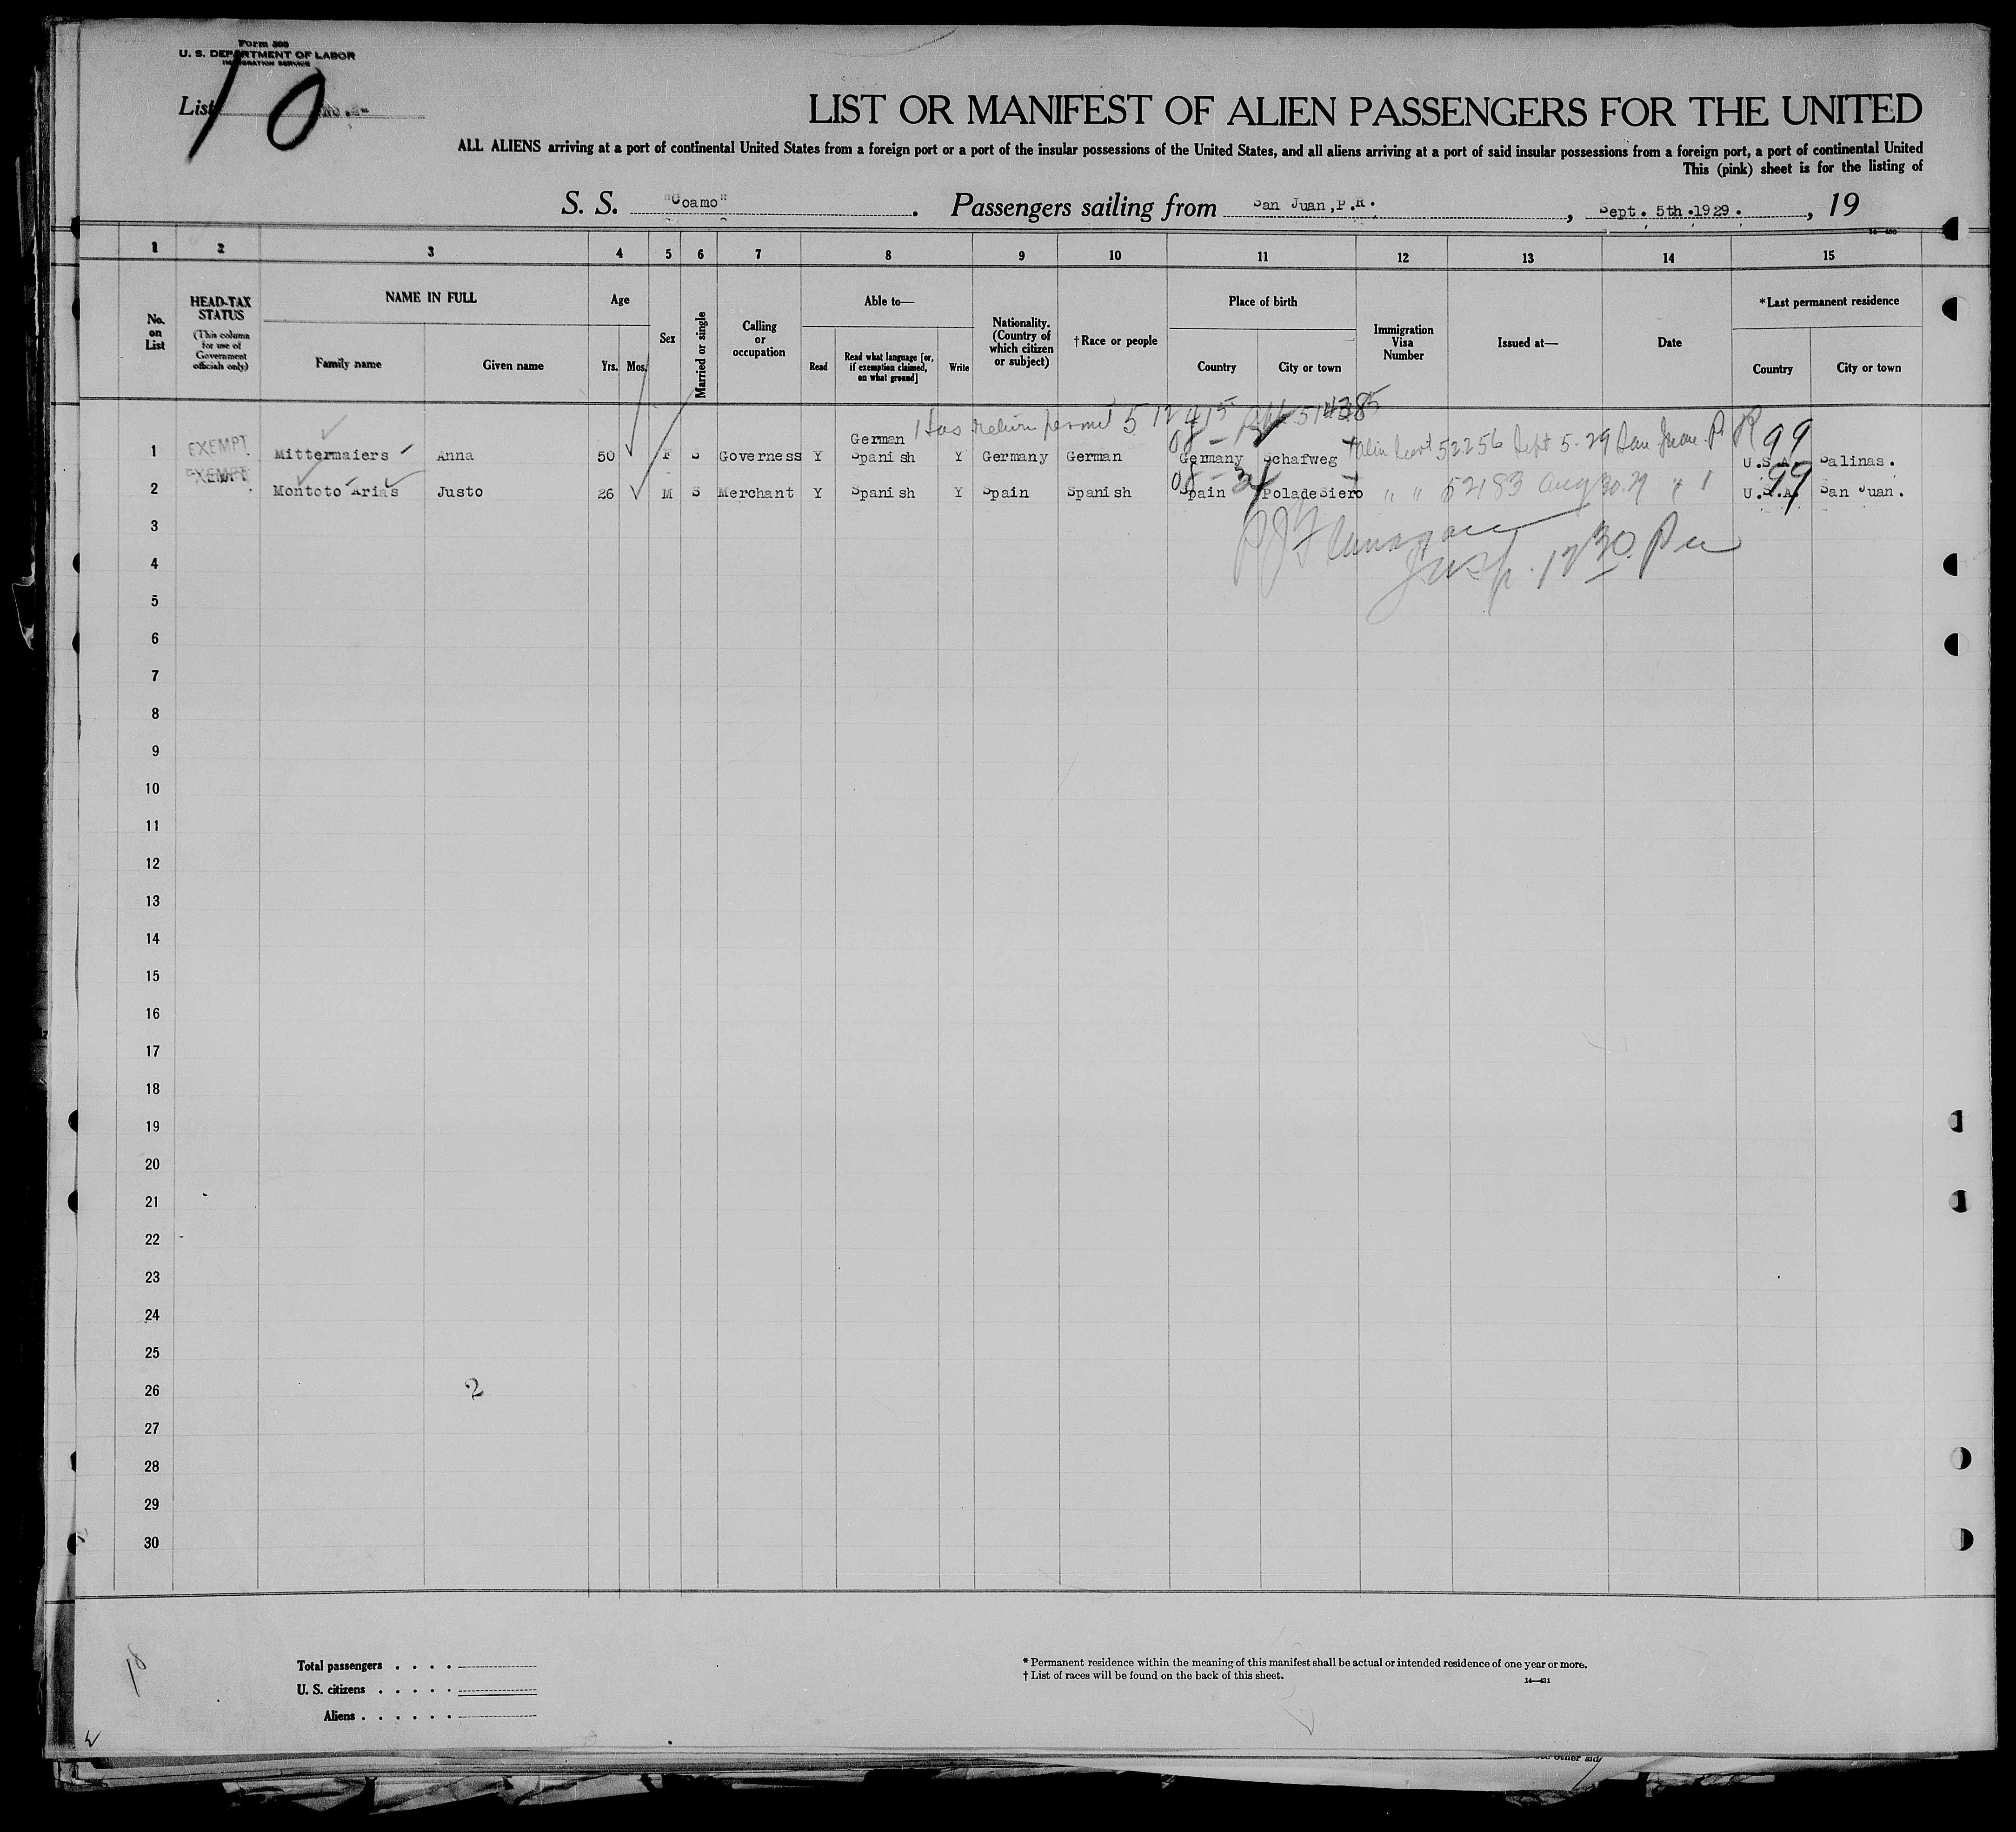 Form 500
U. S. DEPARTMENT OF LABOR
IMMIGRATION SERVICE
List 10
LIST OR MANIFEST OF ALIEN PASSENGERS FOR THE UNITED
ALL ALIENS arriving at a port of continental United States from a foreign port or a port of the insular possessions of the United States, and all aliens arriving at a port of said insular possessions from a foreign port, a port of continental United
This (pink) sheet is for the listing of
S. S. "Coamo". Passengers sailing from San Juan,P.R., Sept. 5th.1929., 19
1 2 3 4 5 6 7 8 9 10 11 12 13 14 15
No. on List
HEAD-TAX STATUS
(This column for use of Government officials only)
NAME IN FULL
Family name Given name
Age
Yrs. Mos.
Sex
Married or single
Calling or occupation
Able to—
Read
Read what language [or, if exemption claimed, on what ground]
Write
Nationality. (Country of which citizen or subject)
†Race or people
Place of birth
Country City or town
Immigration Visa Number
Issued at—
Date
*Last permanent residence
Country City or town
Has return permit
German
1 EXEMPT Mittermaiers Anna 50 F S Governess Y Spanish Y Germany German Germany Schafweg 52256 Sept 5-29 San Juan P R 99 U.S.A. Salinas.
2 EXEMPT Montoto Arias Justo 26 M S Merchant Y Spanish Y Spain Spanish Spain PoladeSiero " " 52183 Aug 30.29 " " 99 U.S.A. San Juan.
3
4
Insp.
5
6
7
8
9
10
11
12
13
14
15
16
17
18
19
20
21
22
23
24
25
26 2
27
28
29
30
Total passengers . . . .
U. S. citizens . . . . .
Aliens . . . . . .
* Permanent residence within the meaning of this manifest shall be actual or intended residence of one year or more.
† List of races will be found on the back of this sheet.
14—431